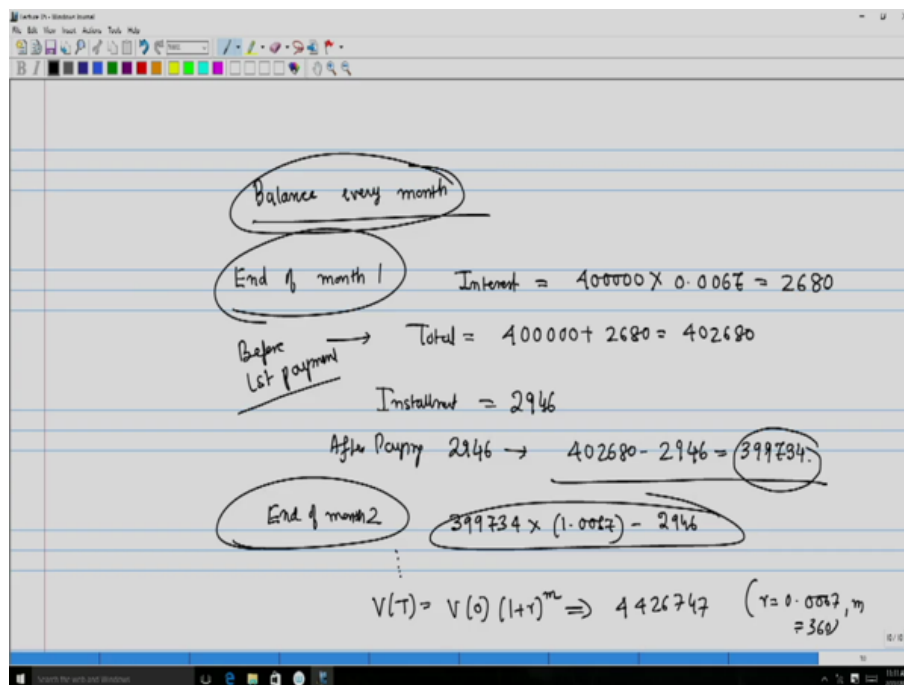 Lecture 21 - Windows Journal
File Edit View Insert Actions Tools Help
B I
Balance every month
End of month 1 Interest = 400000 X 0.0067 = 2680
Before 1st payment → Total = 400000 + 2680 = 402680
Installment = 2946
After Paying 2946 → 402680 - 2946 = 399734.
End of month 2 399734 x (1.0067) - 2946
V(T) = V(0) (1+r)^m ⇒ 4426747 (r = 0.0067, m = 360)
Search the web and Windows